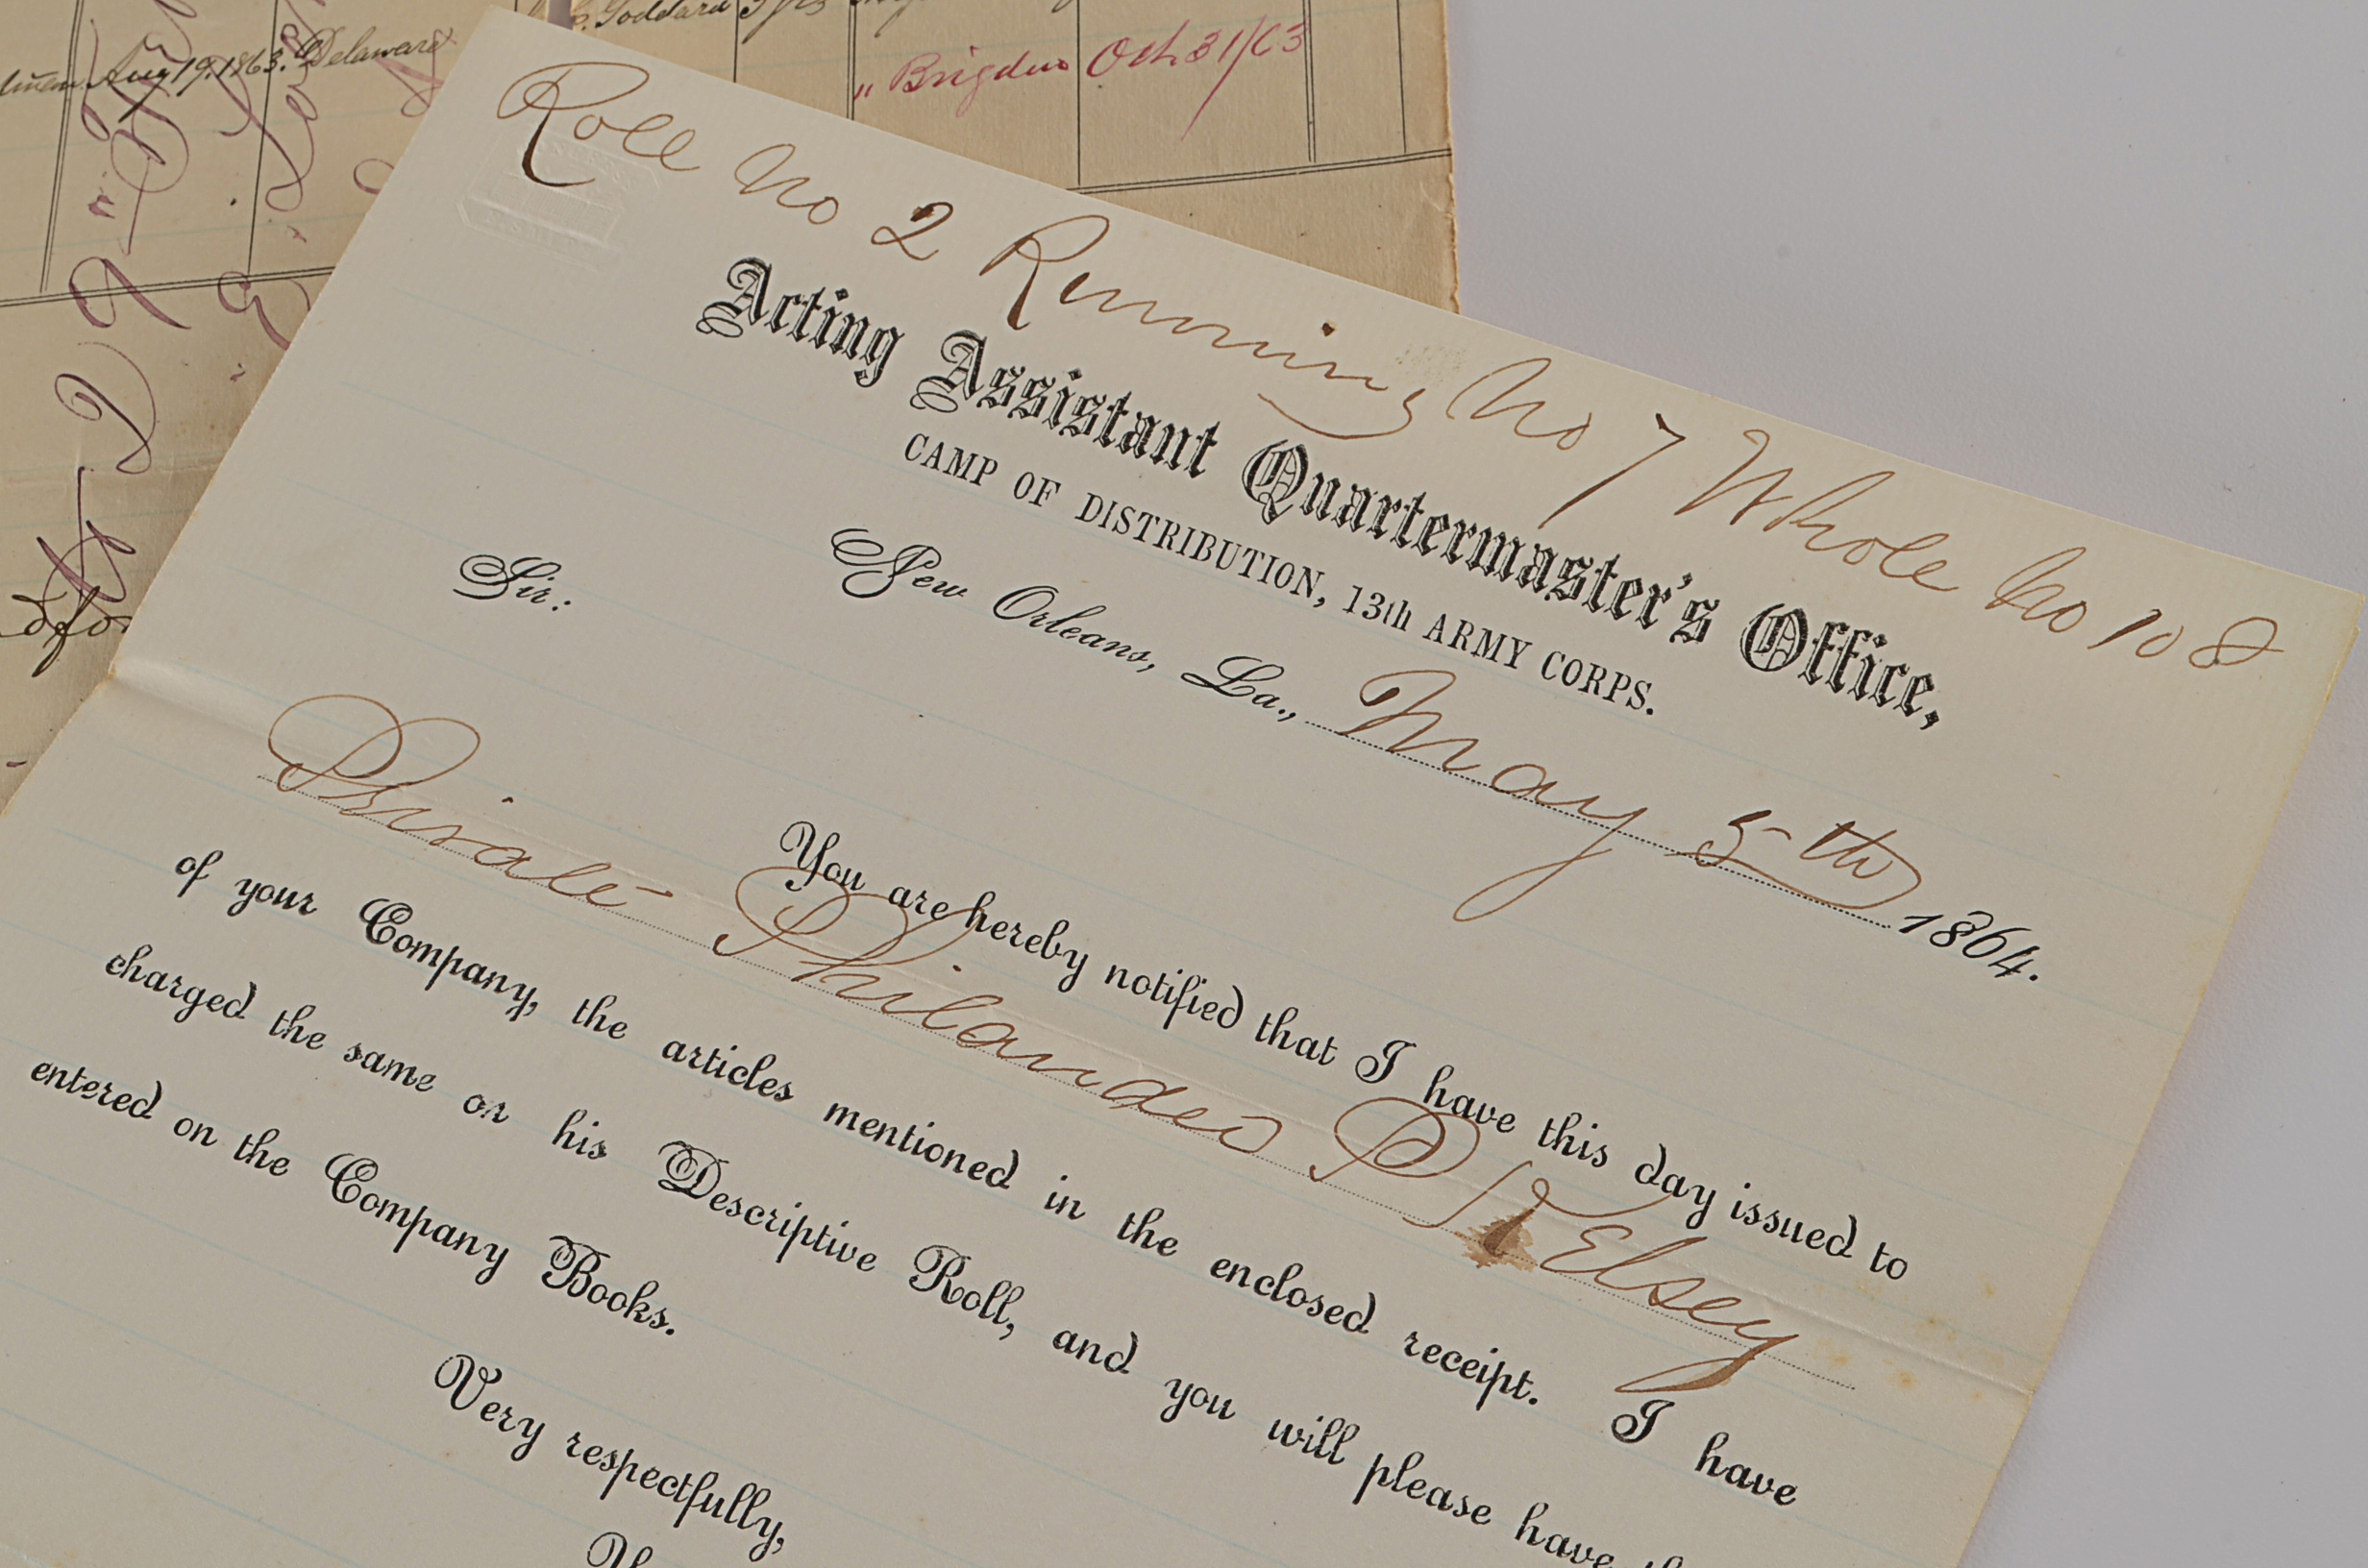 Goddard
Aug 19. 1863. Delaware
" Brigden Oct 31/63
Roll No 2 Running No 7 Whole No 108
Acting Assistant Quartermaster's Office,
CAMP OF DISTRIBUTION, 13th ARMY CORPS.
New Orleans, La., May 5th 1864.
Sir:
You are hereby notified that I have this day issued to
Private Philander P Kelsey
of your Company, the articles mentioned in the enclosed receipt. I have
charged the same on his Descriptive Roll, and you will please have
entered on the Company Books.
Very respectfully,